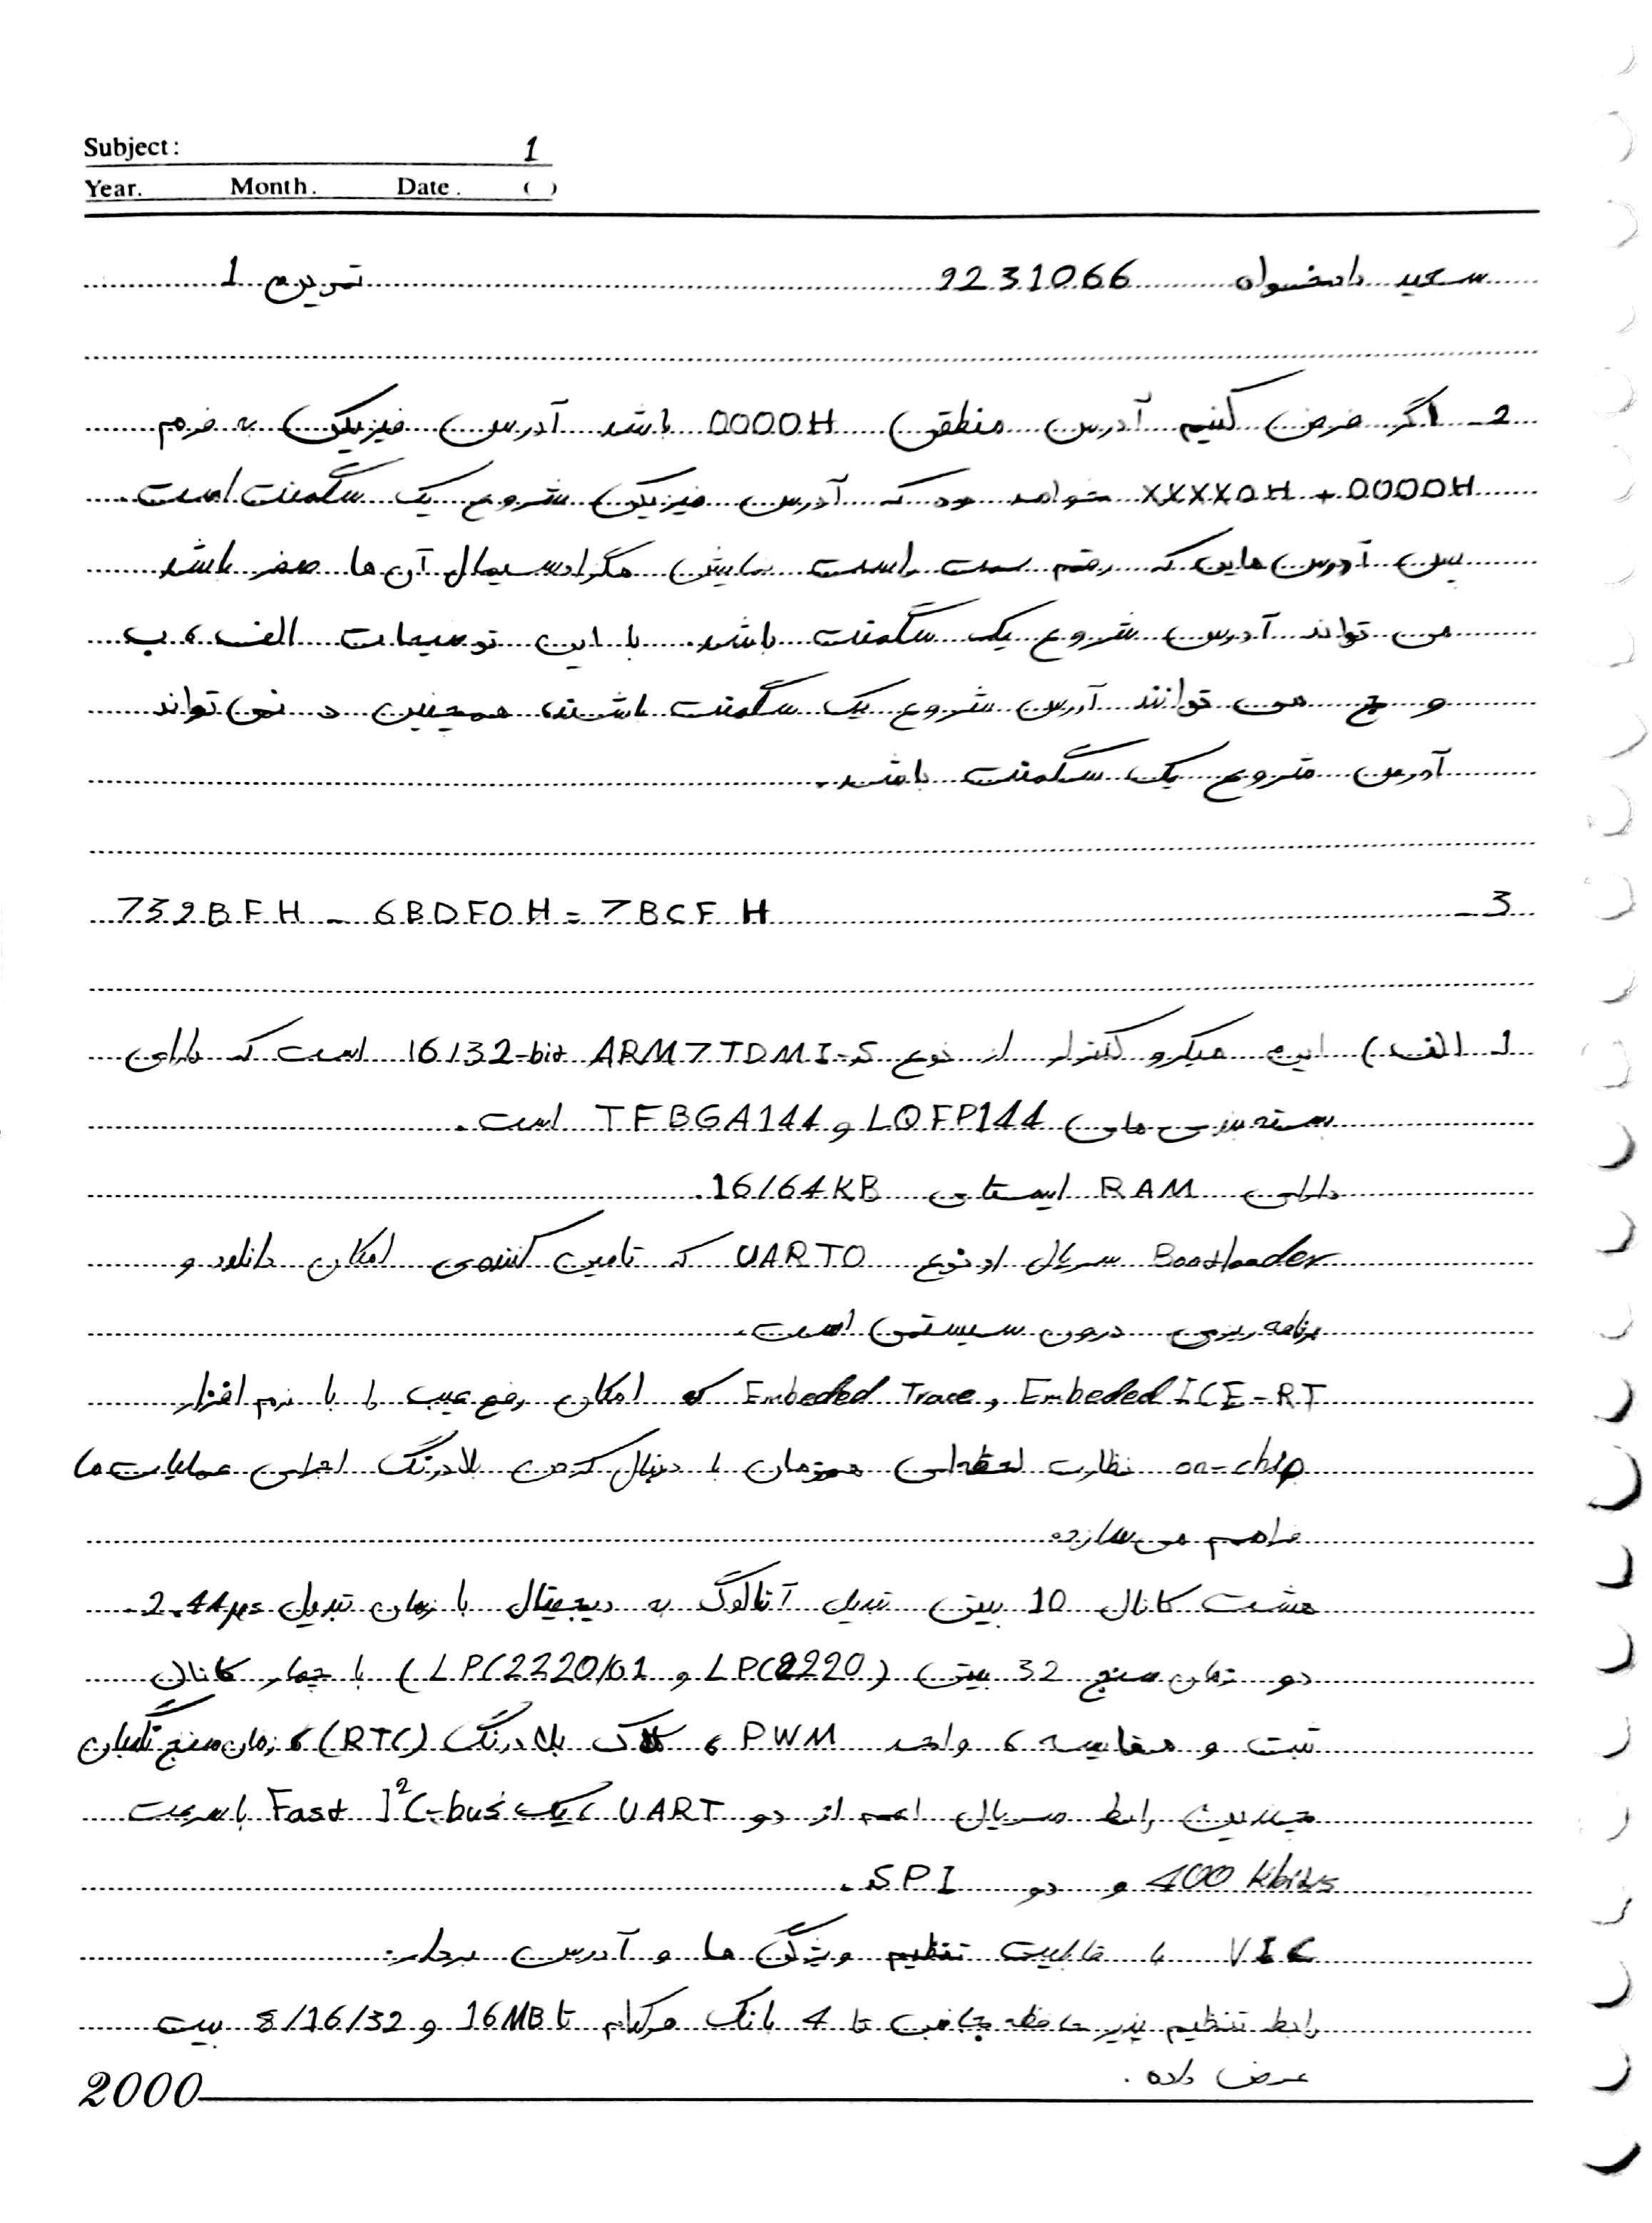 Subject: 1
Year. Month. Date. ( )
سعید دادخواه 9231066 تمرین 1
2_ اگر فرض کنیم آدرس منطقی 0000H باشد آدرس فیزیکی به فرم
XXXX0H + 0000H خواهد بود که آدرس فیزیکی شروع یک سگمنت است.
پس آدرس هایی که رقم سمت راست نمایش هگزادسیمال آن ها صفر باشد
می تواند آدرس شروع یک سگمنت باشد. با این توضیحات الف، ب
و ج می توانند آدرس شروع یک سگمنت باشند، همچنین د نمی تواند
آدرس شروع یک سگمنت باشد.
3_ 739BFH - 6BDF0H = 7BCFH
1_ الف) این میکروکنترلر از نوع 16/32-bit ARM7TDMI-S است که دارای
بسته بندی های LQFP144 و TFBGA144 است.
دارای RAM ایستای 16/64KB.
Bootloader سریال از نوع UART0 که تامین کننده ی امکان دانلود و
برنامه ریزی درون سیستمی است.
Embeded ICE-RT و Embeded Trace که امکان رفع عیب را با نرم افزار
on-chip نظارت لحظه ای همزمان با دنبال کردن بلادرنگ اجرای عملیات ها
فراهم می سازد.
هشت کانال 10 بیتی تبدیل آنالوگ به دیجیتال با زمان تبدیل 2.44μs.
دو زمان سنج 32 بیتی (LPC2220 و LPC2220/01) با چهار کانال
ثبت و مقایسه، واحد PWM، کلاک بلادرنگ (RTC)، زمان سنج نگهبان
چندین رابط سریال اعم از دو UART، یک Fast I²C-bus با سرعت
400 kbit/s و دو SPI.
VIC با قابلیت تنظیم ویژگی ها و آدرس بردار.
رابط تنظیم پذیر حافظه جانبی تا 4 بانک هرکدام تا 16MB و 8/16/32 بیت
عرض داده.
2000